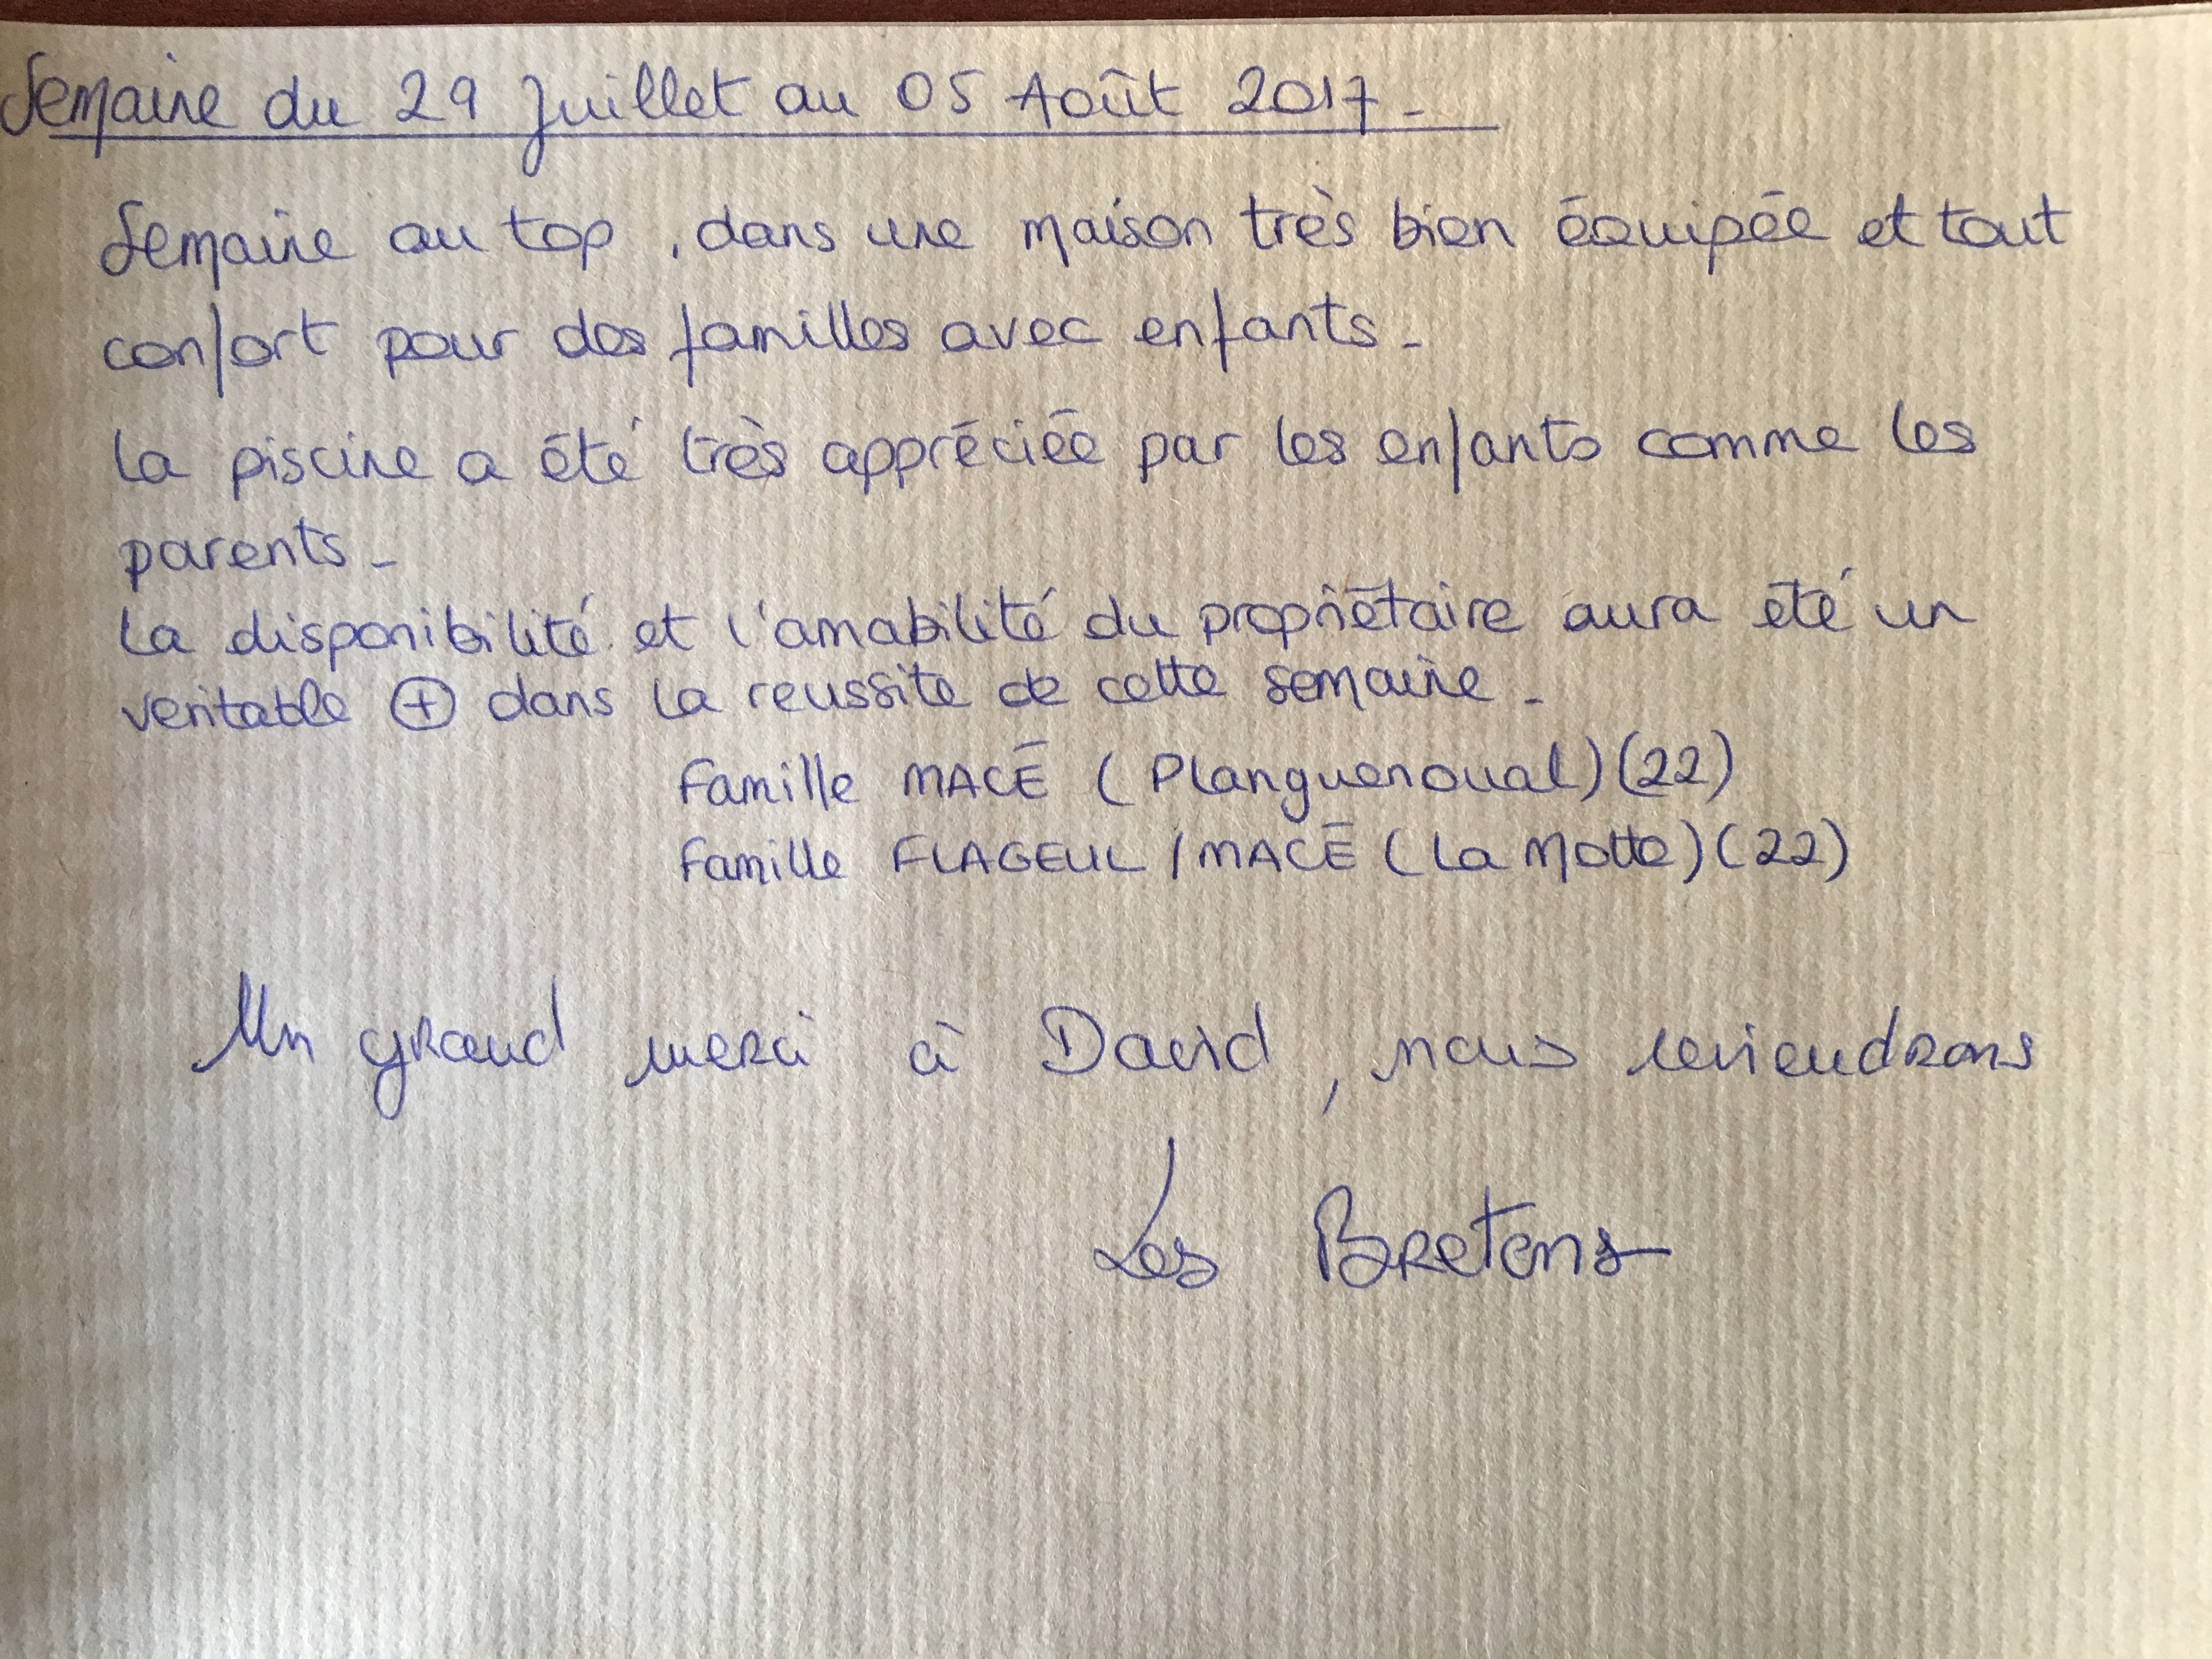 Semaine du 29 Juillet au 05 Août 2017-
Semaine au top, dans une maison très bien équipée et tout
confort pour des familles avec enfants-
La piscine a été très appréciée par les enfants comme les
parents-
La disponibilité et l'amabilité du propriétaire aura été un
veritable ⊕ dans la reussite de cette semaine-
Famille MACÉ (Planguenoual)(22)
Famille FLAGEUL / MACÉ (La Motte)(22)
Un grand merci à David, nous reviendrons
Les Bretons